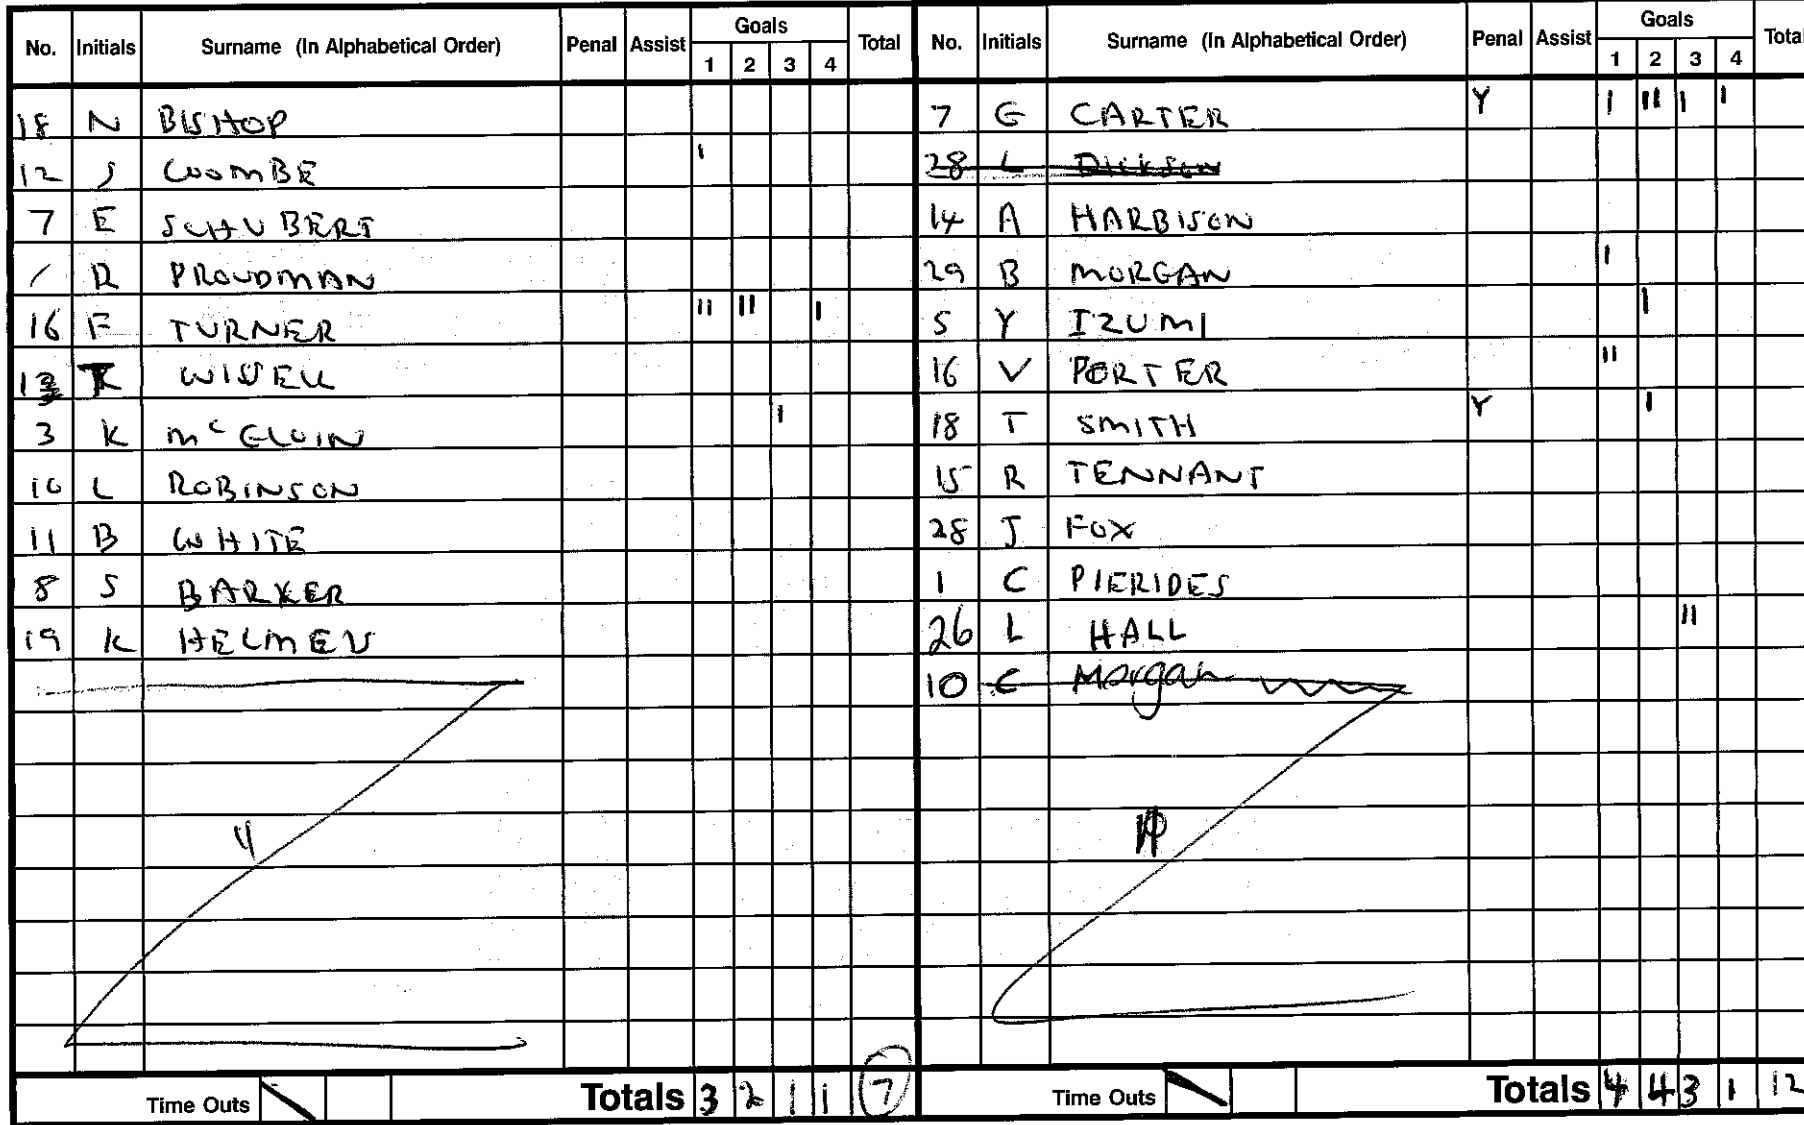 No. Initials Surname (In Alphabetical Order) Penal Assist Goals 1 2 3 4 Total
18 N BISHOP
12 J COOMBE I
7 E SCHUBERT
1 R PROUDMAN
16 F TURNER II II I
K
3 K McELUIN I
10 L ROBINSON
11 B WHITE
8 S BARKER
19 K
11
Time Outs Totals 3 2 1 1 7
No. Initials Surname (In Alphabetical Order) Penal Assist Goals 1 2 3 4 Total
7 G CARTER Y I II I I
28 L Dickson
14 A HARBISON
29 B MORGAN I
5 Y IZUMI I
16 V PORTER II
18 T SMITH Y I
15 R TENNANT
28 J FOX
1 C PIERIDES
26 L HALL II
10 C Morgan
Time Outs Totals 4 4 3 1 12